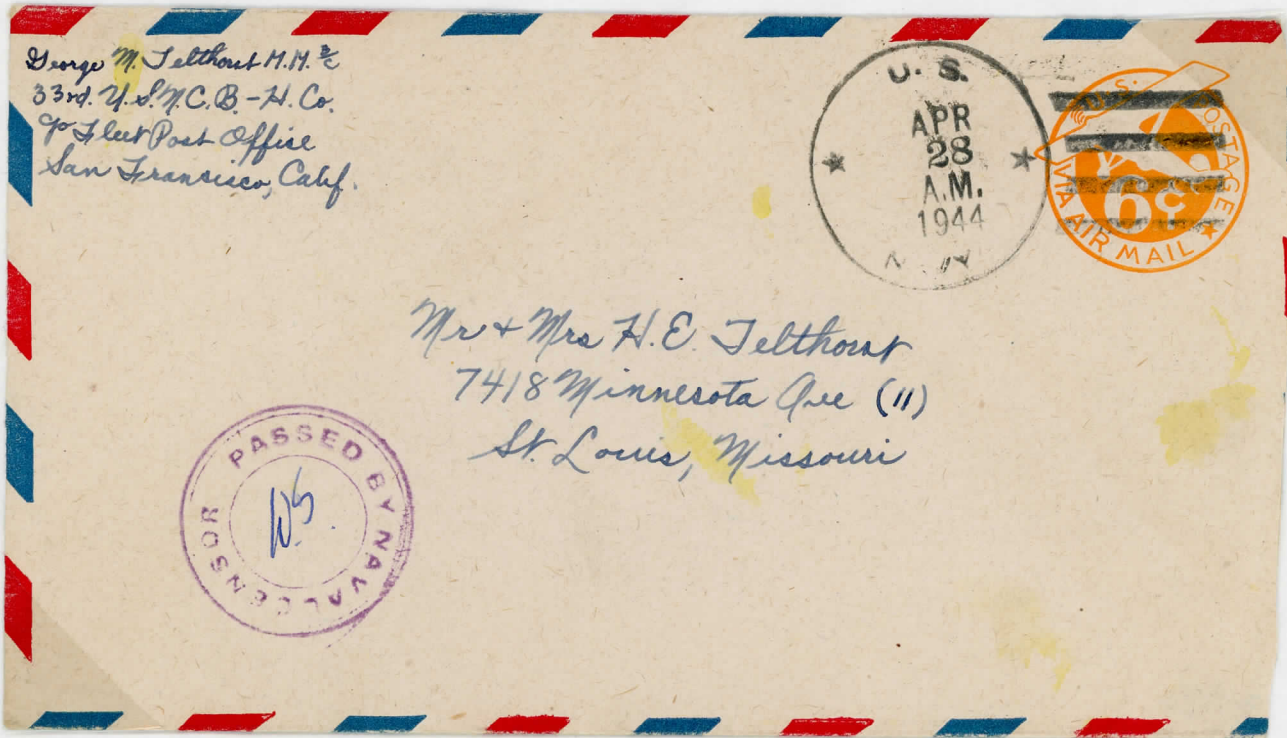 George M. Telthorst M.M. 3/c
33rd. U.S.N.C.B. - H. Co.
c/o Fleet Post Office
San Francisco, Calif.
U. S.
APR
28
A.M.
1944
NAVY
U.S. POSTAGE
6¢
VIA AIR MAIL
Mr + Mrs H.E. Telthorst
7418 Minnesota Ave (11)
St. Louis, Missouri
PASSED BY NAVAL CENSOR